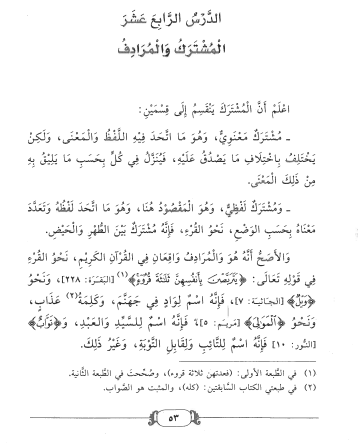 الدَّرْسُ الرَّابِعَ عَشَرَ
الْمُشْتَرَكُ وَالْمُرَادِفُ
اعْلَمْ أَنَّ الْمُشْتَرَكَ يَنْقَسِمُ إِلَى قِسْمَيْنِ:
ـ مُشْتَرَكٌ مَعْنَوِيٌّ، وَهُوَ مَا اتَّحَدَ فِيهِ اللَّفْظُ وَالْمَعْنَى، وَلَكِنْ
يَخْتَلِفُ بِاخْتِلَافِ مَا يَصْدُقُ عَلَيْهِ، فَيُنَزَّلُ فِي كُلٍّ بِحَسَبِ مَا يَلِيقُ بِهِ
مِنْ ذَلِكَ الْمَعْنَى.
ـ وَمُشْتَرَكٌ لَفْظِيٌّ، وَهُوَ الْمَقْصُودُ هُنَا، وَهُوَ مَا اتَّحَدَ لَفْظُهُ وَتَعَدَّدَ
مَعْنَاهُ بِحَسَبِ الْوَضْعِ، نَحْوُ الْقُرْءِ، فَإِنَّهُ مُشْتَرَكٌ بَيْنَ الطُّهْرِ وَالْحَيْضِ.
وَالْأَصَحُّ أَنَّهُ هُوَ وَالْمُرَادِفُ وَاقِعَانِ فِي الْقُرْآنِ الْكَرِيمِ، نَحْوُ الْقُرْءِ
فِي قَوْلِهِ تَعَالَى: ﴿يَتَرَبَّصْنَ بِأَنْفُسِهِنَّ ثَلَٰثَةَ قُرُوٓءٍ﴾(١) [البَقَرَة: ٢٢٨]، وَنَحْوُ
﴿وَيْلٌ﴾ [الجَاثيَة: ٧]، فَإِنَّهُ اسْمٌ لِوَادٍ فِي جَهَنَّمَ، وَكَلِمَةُ(٢) عَذَابٍ،
وَنَحْوُ ﴿الْمَوَٰلِيَ﴾ [مَريَم: ٥] فَإِنَّهُ اسْمٌ لِلسَّيِّدِ وَالْعَبْدِ، وَ﴿تَوَّابٌ﴾
[النُّور: ١٠] فَإِنَّهُ اسْمٌ لِلتَّائِبِ وَلِقَابِلِ التَّوْبَةِ، وَغَيْرُ ذَلِكَ.
(١) في الطبعة الأولى: (فعدتهن ثلاثة قروء)، وصُحِّحتْ في الطبعة الثانية.
(٢) في طبعتي الكتاب السابقتين: (كله)، والمثبت هو الصَّواب.
٥٣